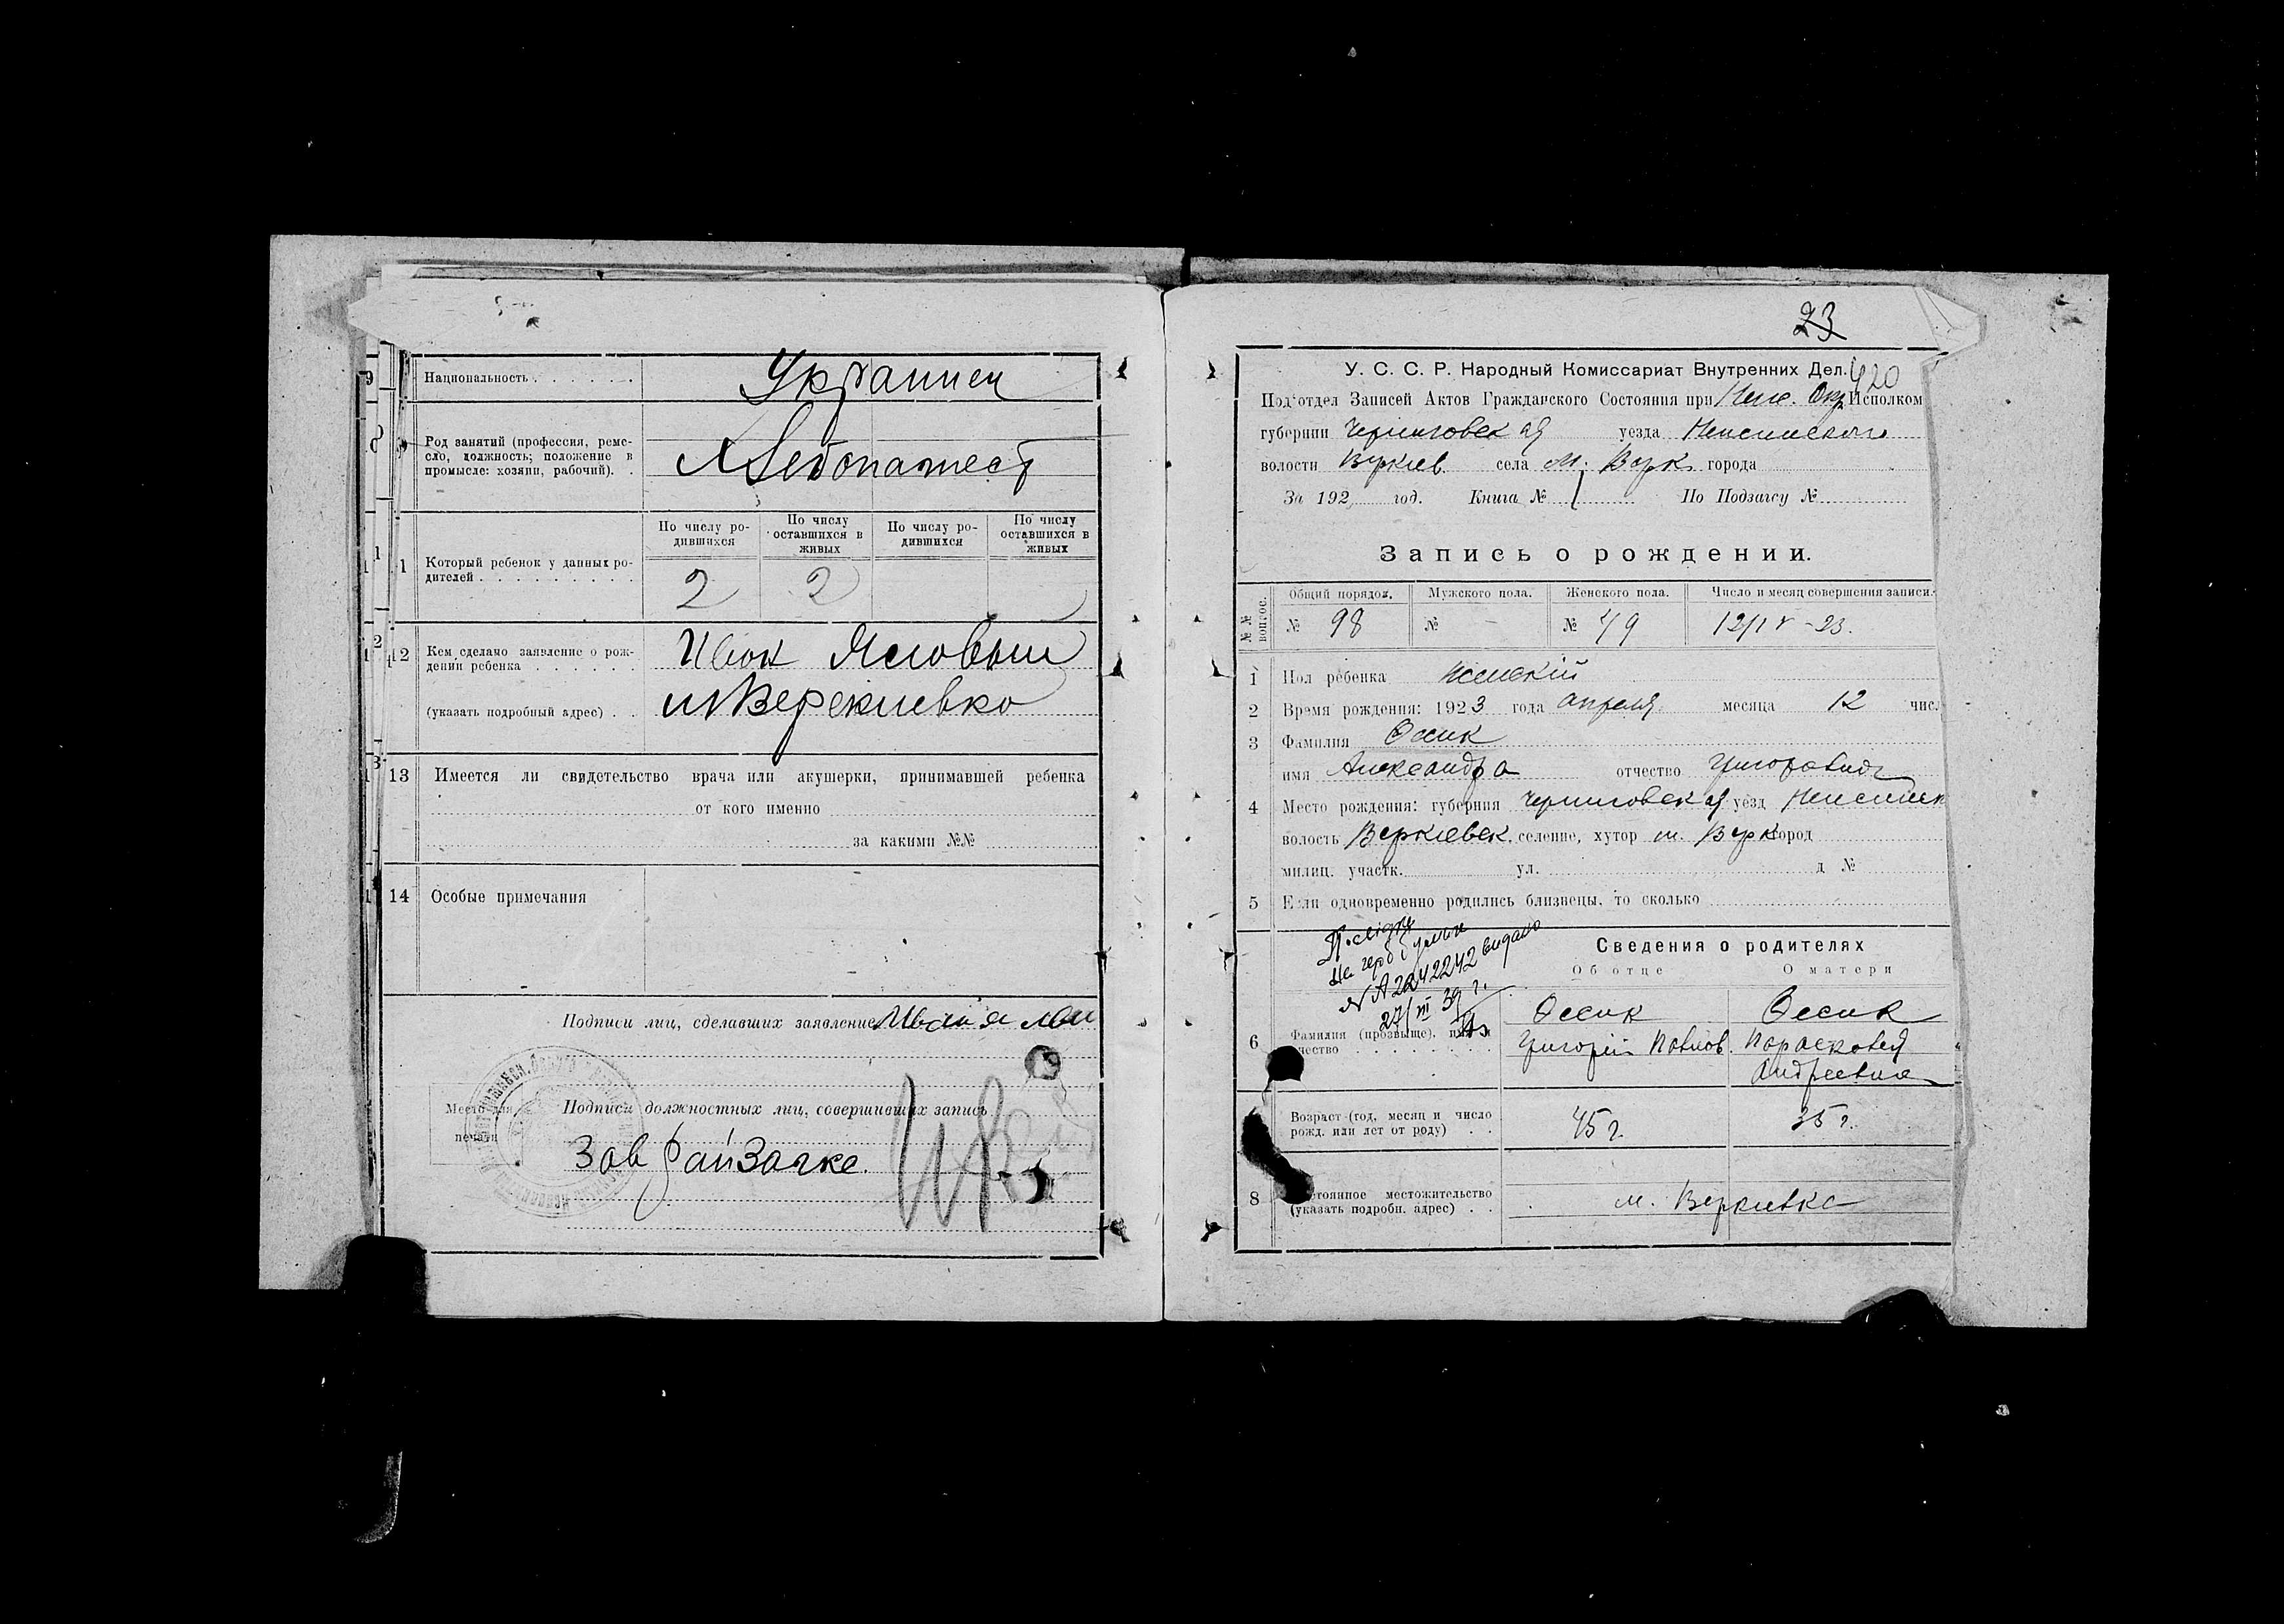 9 Национальность . . . . . . Украинец
Род занятий (профессия, ремес-
сло, должность; положение в
промысле: хозяин, рабочий). .
Хлебопашест
По числу ро-
дившихся
По числу
оставшихся в
живых
По числу ро-
дившихся
По числу
оставшихся в
живых
11 Который ребенок у данных ро-
дителей . . . . . . . . . 2 2
12 Кем сделано заявление о рож-
дении ребенка . . . . . .
(указать подробный адрес) . .
Яловый
м Верекиевка
13 Имеется ли свидетельство врача или акушерки, принимавшей ребенка
от кого именно
за какими №№
14 Особые примечания
Подписи лиц, сделавших заявление
Место для
печати
Подписи должностных лиц, совершивших запись
Зав
23
У. С. С. Р. Народный Комиссариат Внутренних Дел. 420
Под‘отдел Записей Актов Гражданского Состояния при Неж. Окр Исполком
губернии Черниговская уезда Неженского
волости Веркиев. села м. Верк. города
За 192 год. Книга № 1 По Подзагсу №
Запись о рождении.
№ №
вопрос.
Общий порядок. Мужского пола. Женского пола. Число и месяц совершения записи.
№ 98 № - № 49 12/IV-23.
1 Пол ребенка женский
2 Время рождения: 1923 года апреля месяца 12 числ
3 Фамилия Оссик
имя Александра отчество Григоровна
4 Место рождения: губерния Черниговская уезд Неженск
волость Веркиевск. селение, хутор м. Верк город
милиц. участк. ул. д №
5 Если одновременно родились близнецы, то сколько
№ А 2242242 видано
27/III 39 г.
Сведения о родителях
Об отце О матери
6 Фамилия (прозвище), и
чество . . . . . . . . .
Оссик Оссик
Григорий Павлов. Парасковея
Андреевна
Возраст (год, месяц и число
рожд. или лет от роду) . .
45 г. 35 г.
8 стоянное местожительство
(указать подробн. адрес) . .
м. Веркиевка